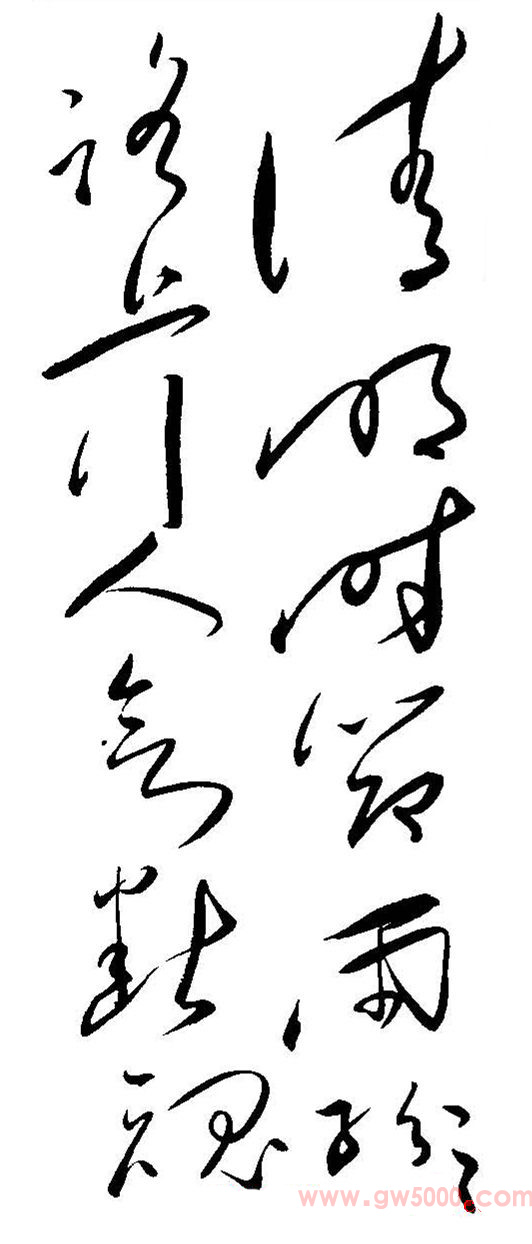 清明时节雨纷纷
路上行人欲断魂
www.gw5000.com